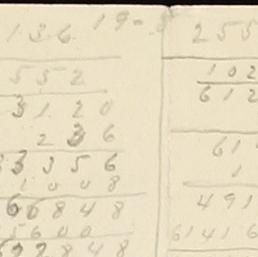 136 19-
552
3120
236
3356
1008
66848
5600
848
255
102
612
61
1
491
61416